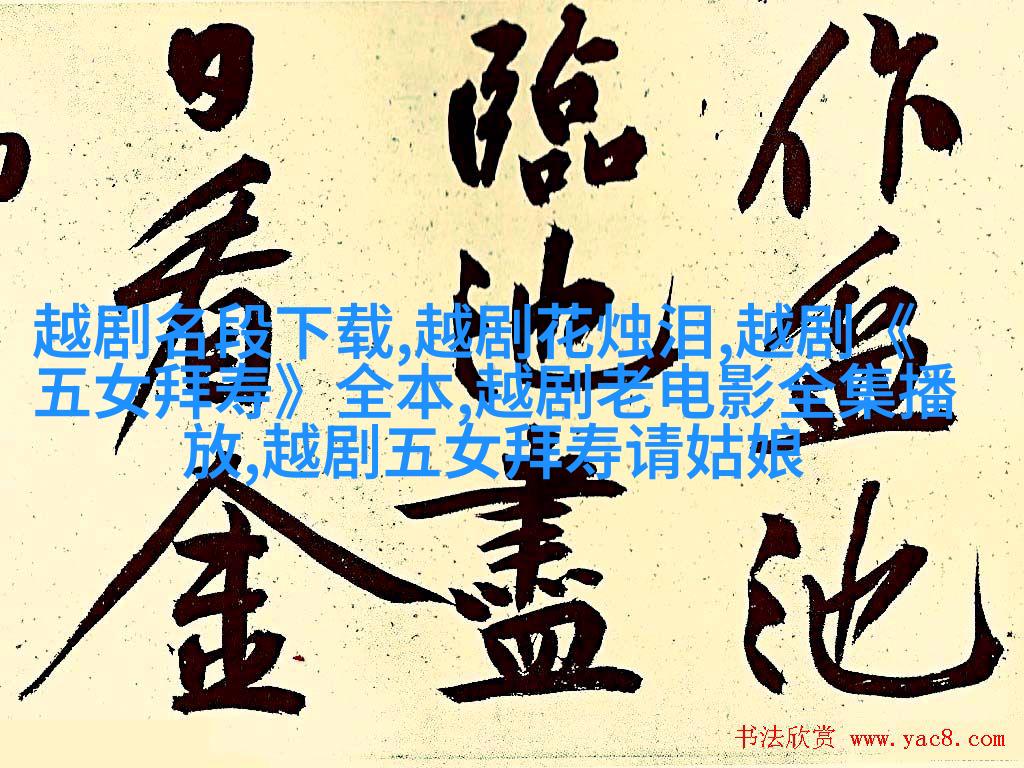 作盆池
臨池盡
日看金
越剧名段下载,越剧花烛泪,越剧《
五女拜寿》全本,越剧老电影全集播
放,越剧五女拜寿请姑娘
书法欣赏 www.yac8.com